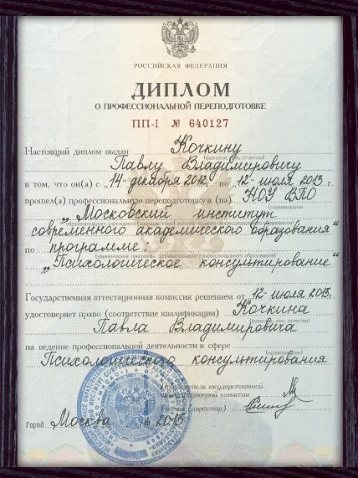 РОССИЙСКАЯ ФЕДЕРАЦИЯ
ДИПЛОМ
О ПРОФЕССИОНАЛЬНОЙ ПЕРЕПОДГОТОВКЕ
ПП-I № 640127
Настоящий диплом выдан Кочкину
Павлу Владимировичу
в том, что он(а) с „14" декабря 2012г. по „12" июля 2013г.
прошел(а) профессиональную переподготовку в (на) НОУ ВПО
„Московский институт
современного академического образования"
по программе:
„Психологическое консультирование"
Государственная аттестационная комиссия решением от „12" июля 2013г.
удостоверяет право (соответствие квалификации) Кочкина
Павла Владимировича
на ведение профессиональной деятельности в сфере
Психологического консультирования
Председатель государственной
аттестационной комиссии
Ректор (директор)
Город Москва 2013